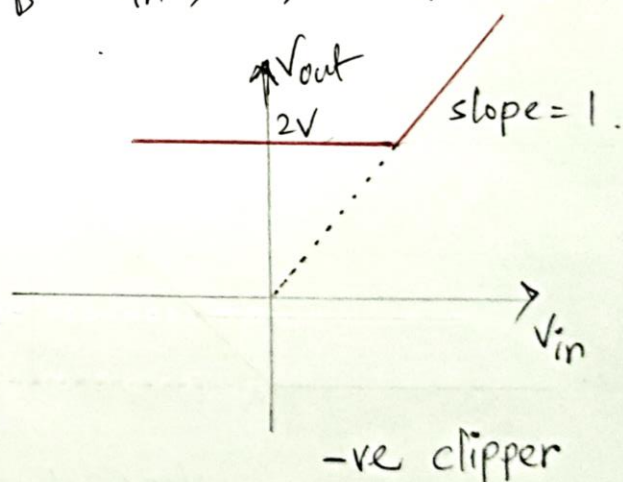 Vout
2V
slope = 1.
Vin
-ve clipper